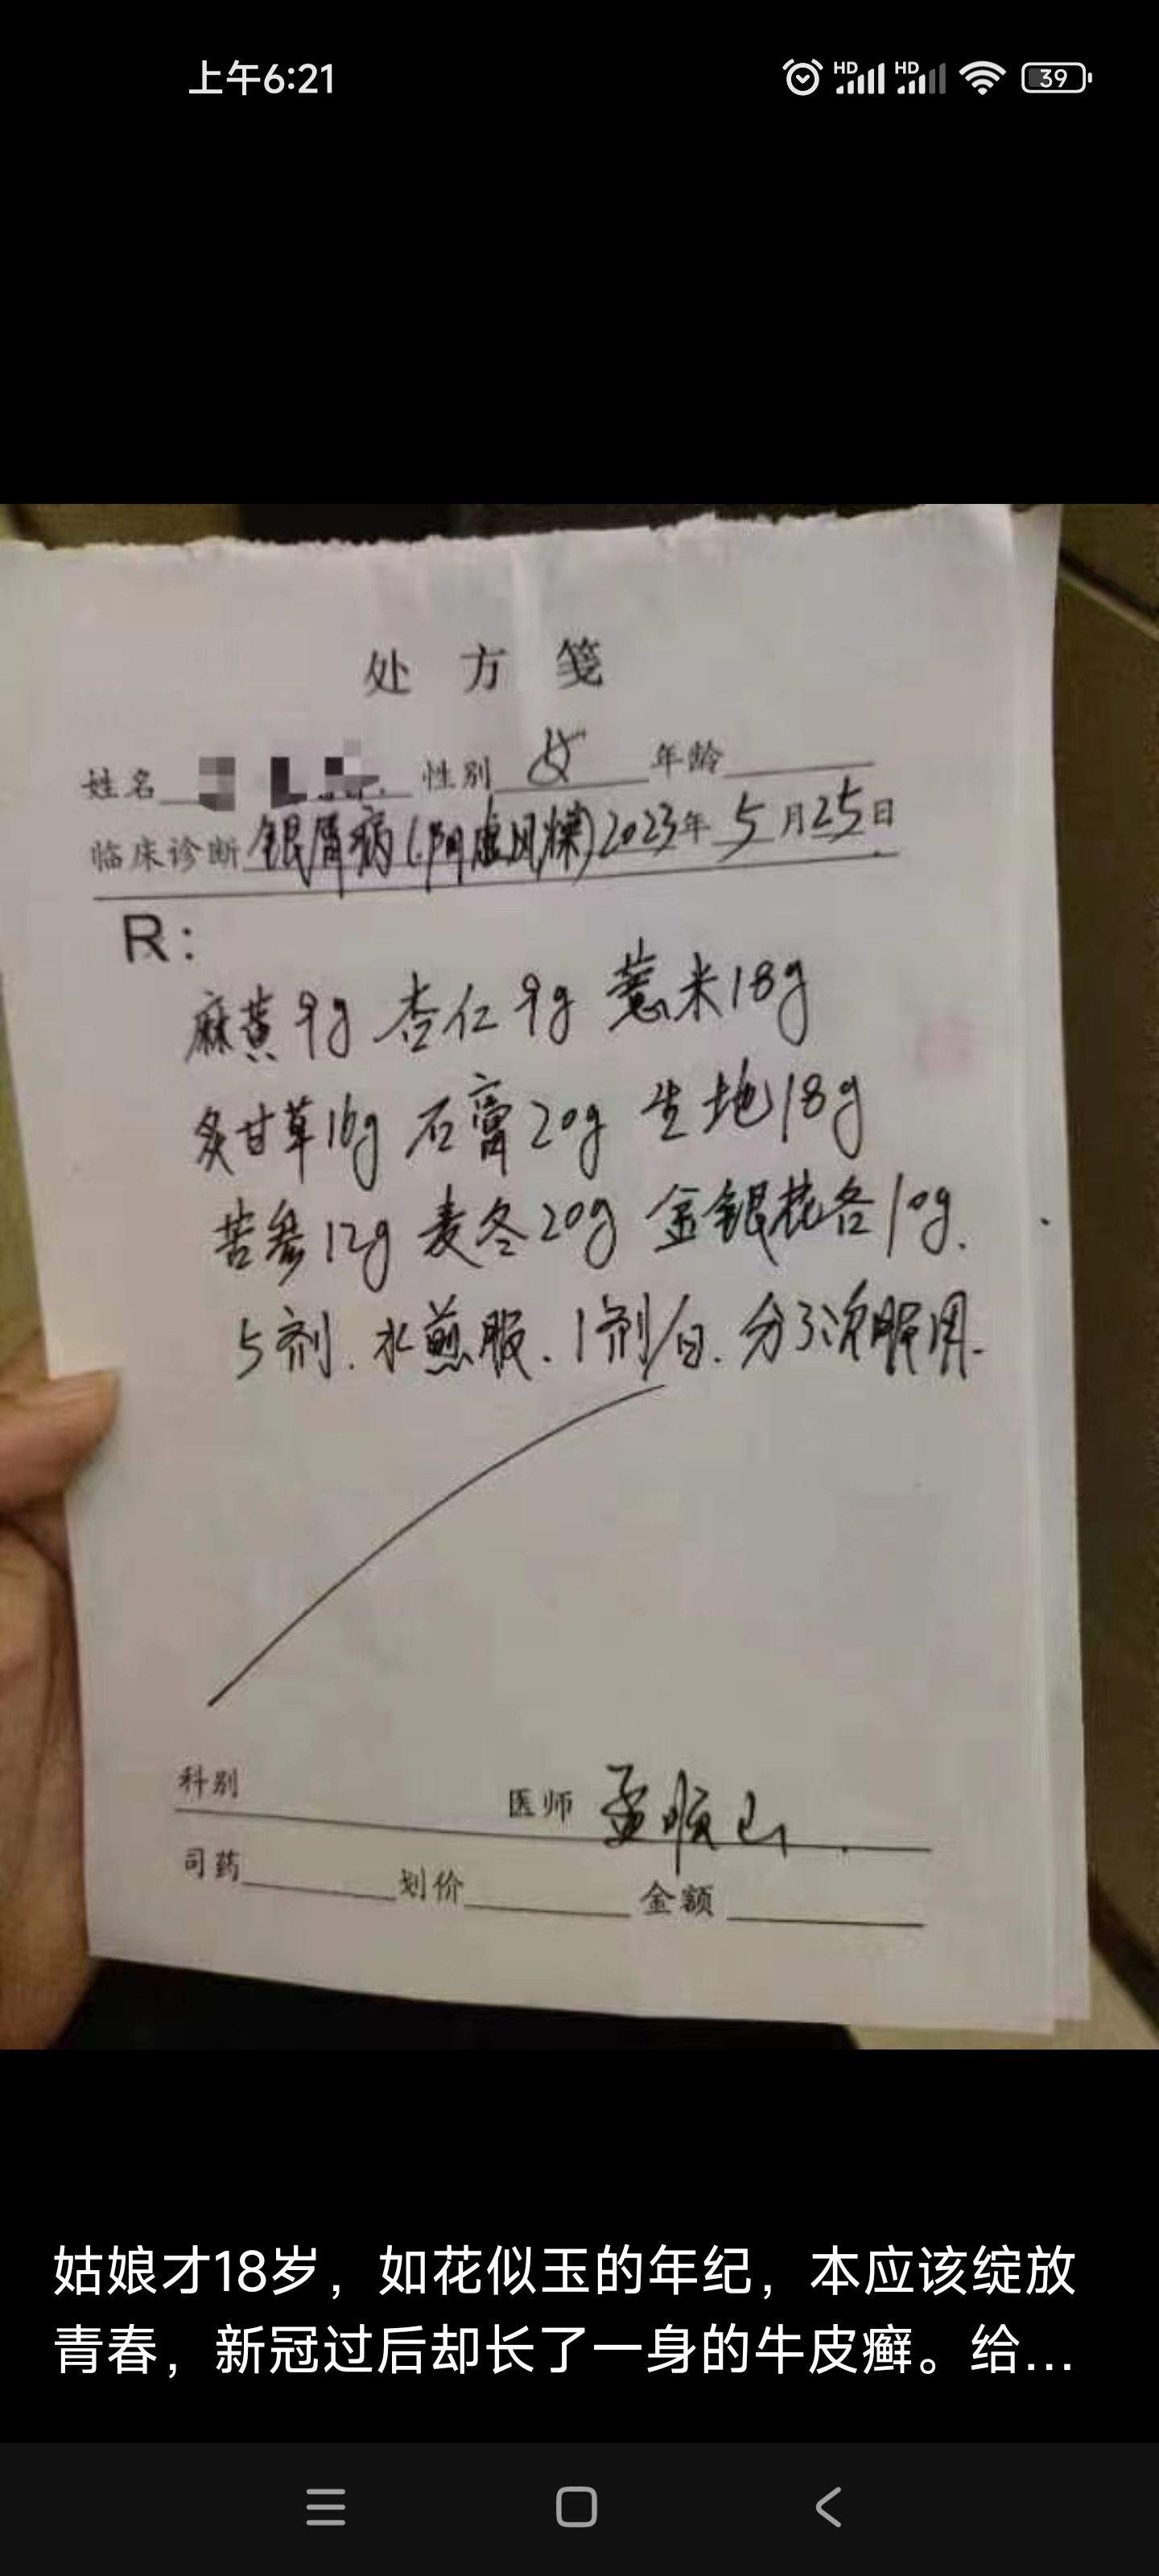 上午6:21
HD HD 39
处方笺
姓名 性别 女 年龄
临床诊断 银屑病(阴虚风燥) 2023年5月25日
R:
麻黄9g 杏仁9g 薏米18g
炙甘草16g 石膏20g 生地18g
苦参12g 麦冬20g 金银花各10g.
5剂.水煎服.1剂/日.分3次服用.
科别 医师 孟顺山
司药 划价 金额
姑娘才18岁，如花似玉的年纪，本应该绽放
青春，新冠过后却长了一身的牛皮癣。给...